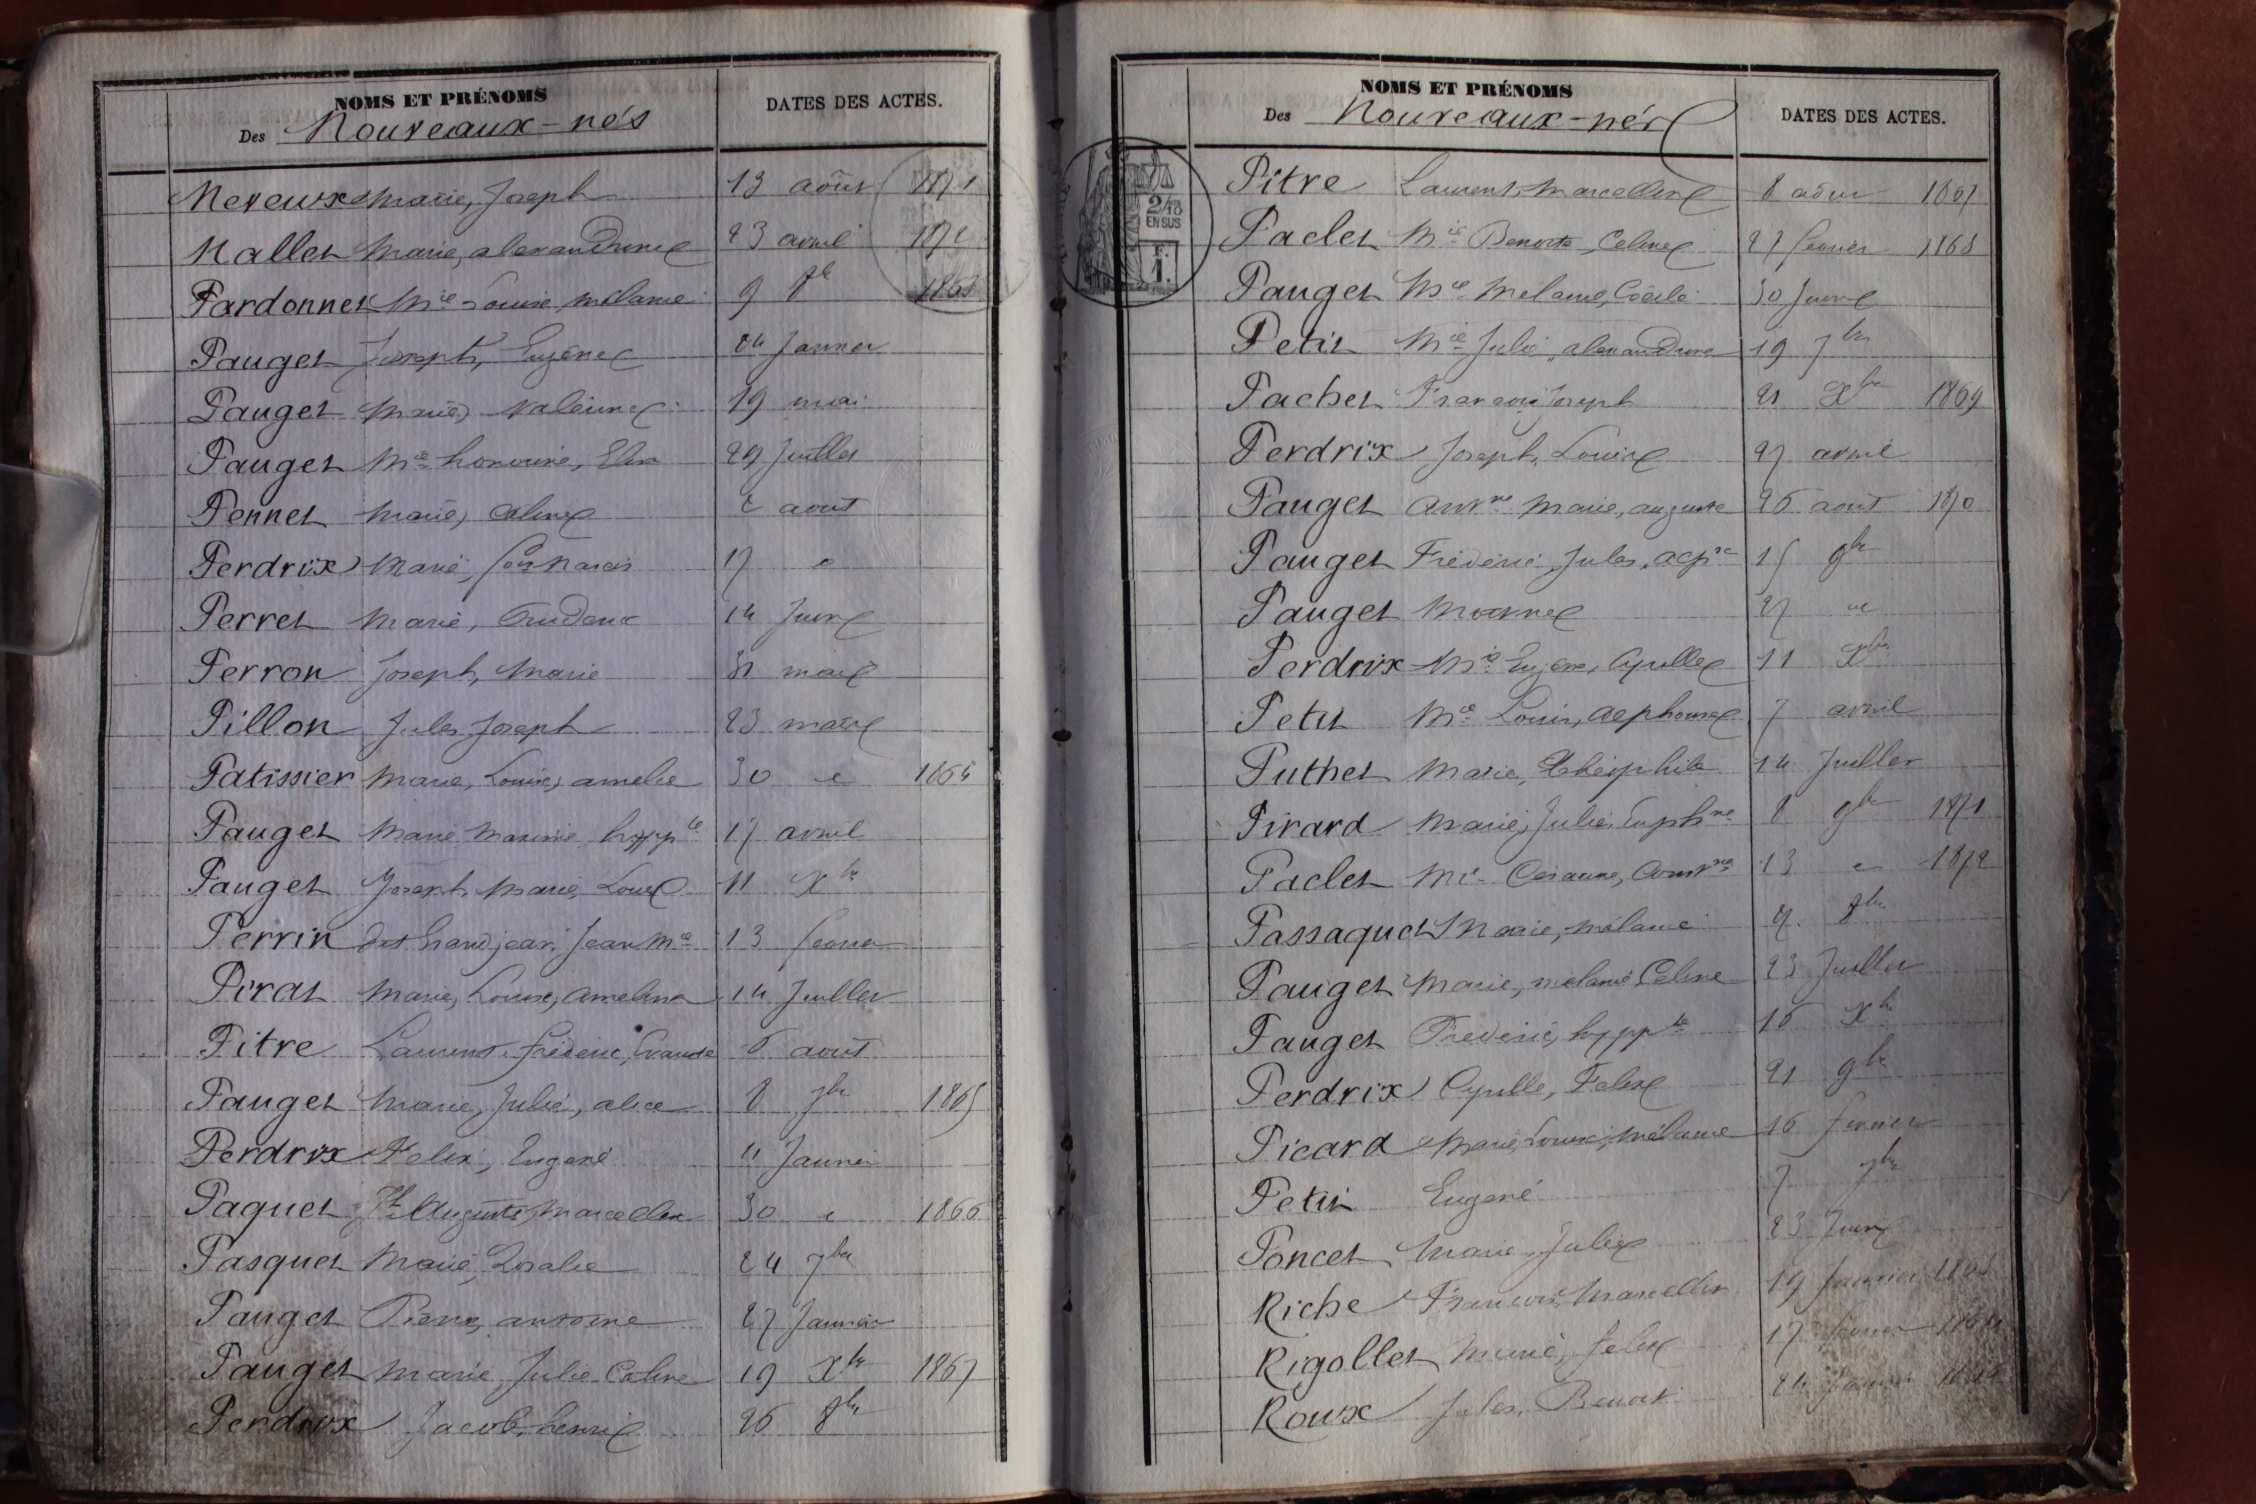 NOMS ET PRÉNOMS
Des Nouveaux-nés
DATES DES ACTES.
Mereux Marie, Joseph 13 août 1871
Nallet Marie, alexandrine 23 avril 1872
Pardonnet Mie Louise, mélanie 9 8bre 1863
Pauget Joseph, Eugène 24 Janvier
Pauget Marie, Valérine 19 mai
Pauget Mie honorine, Elisa 29 Juillet
Pennet Marie, Celine 2 aout
Perdrix Marie, 17 "
Perret Marie, Prudence 14 Juin
Perron Joseph, Marie 31 mars
Pillon Jules Joseph 23 mars
Patissier Marie, Louise, amelie 30 " 1864
Pauget Marie Maximie hyppte 17 avril
Pauget Joseph, Marie, Louis 11 Xbre
Perrin dit Grandjean, Jean Mie 13 fevrier
Pirat Marie, Louise, Amelina 14 Juillet
Pitre Laurent, fréderic, 6 aout
Pauget Marie, Julie, alice 8 7bre 1865
Perdrix Felix, Eugene 11 Janvier
Paquet Auguste, Marcellin 30 " 1866
Pasquet Marie, Rosalie 24 7bre
Pauget Pierre, antoine 27 Janvier
Pauget Marie Julie Celine 19 Xbre 1867
Perdrix Jacob, henri 26 8bre
NOMS ET PRÉNOMS
Des Nouveaux-nés
DATES DES ACTES.
2/10
EN SUS
F.
1.
Pitre Laurent, Marcellin 8 aout 1867
Paclet Mie Benoite, Celine 27 fevrier 1868
Pauget Mie Melanie, Cécile 30 Juin
Petit Mie Julie, alexandrine 19 7bre
Pachet François Joseph 21 Xbre 1869
Perdrix Joseph, Louis 27 avril
Pauget Antne Marie, auguste 26 aout 1870
Pauget Fréderic, Jules, 15 9bre
Pauget 27 "
Perdrix Mie Eugene, Cyrille 11 Xbre
Petit Mie Louis, Alphonse 7 avril
Puthet Marie, Théophile 14 Juillet
Pirard Marie, Julie, Euphne 8 9bre 1871
Paclet Mie Césarine, 13 " 1872
Passaquet Marie, mélanie 8bre
Pauget Marie, melanie Celine 23 Juillet
Pauget Frederic, hyppte 16 Xbre
Perdrix Cyrille, Felix 21 9bre
Picard Marie, Louise, Mélanie 16 fevrier
Petit Eugene 7 7bre
Poncet Marie, Julie 23 Juin
Riche François, Marcellin 19 Janvier
Rigollet Marie, Felix 17 fevrier
Roux Jules, Benoit 24 Janvier